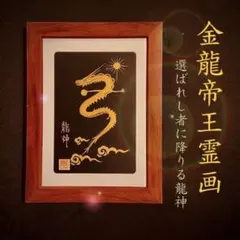 金龍帝王霊画
選ばれし者に降りる龍神
龍神